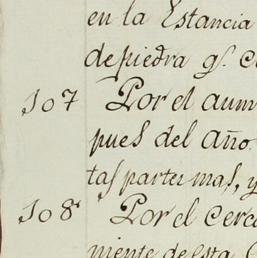 en la Estancia
de piedra qᵉ. c
107 Por el aum
pues del año.
tas partes mas, y
108 Por el cerc
niente de esta